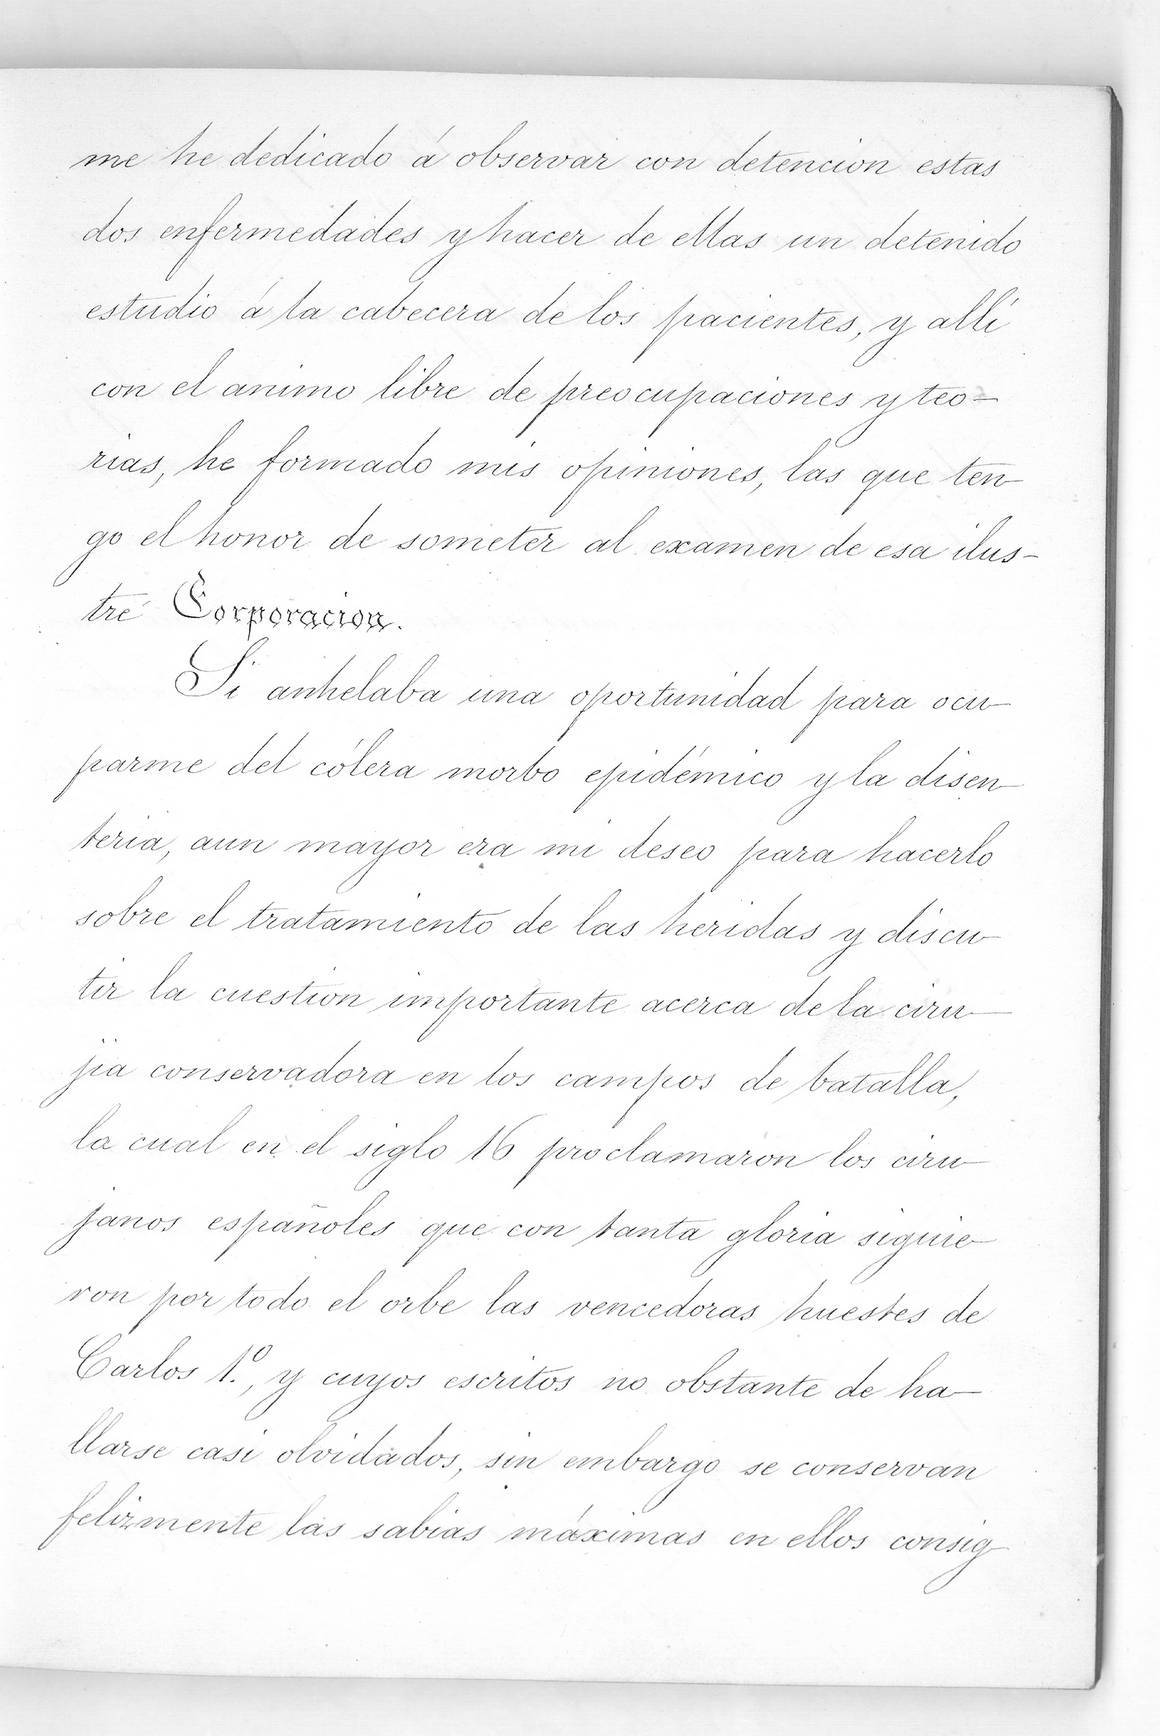 me he dedicado á observar con detencion estas
dos enfermedades y hacer de ellas un detenido
estudio á la cabecera de los pacientes, y allí
con el animo libre de preocupaciones y teo-
rias, he formado mis opiniones, las que ten-
go el honor de someter al examen de esa ilus-
tre Corporacion.
Si anhelaba una oportunidad para ocu-
parme del cólera morbo epidémico y la disen-
teria, aun mayor era mi deseo para hacerlo
sobre el tratamiento de las heridas y discu-
tir la cuestion importante acerca de la ciru-
jia conservadora en los campos de batalla,
la cual en el siglo 16 proclamaron los ciru-
janos españoles que con tanta gloria siguie-
ron por todo el orbe las vencedoras huestes de
Carlos 1.º, y cuyos escritos no obstante de ha-
llarse casi olvidados, sin embargo se conservan
felizmente las sabias máximas en ellos consig-